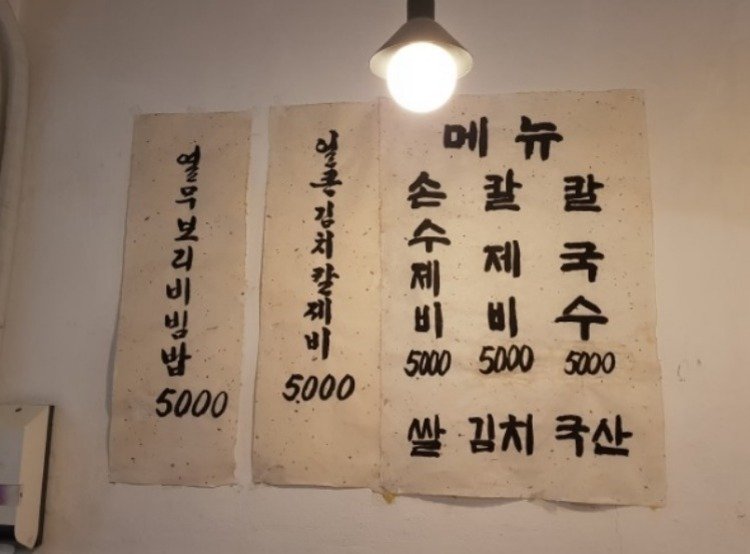 메뉴
칼국수
5000
칼제비
5000
손수제비
5000
쌀 김치 국산
얼큰김치칼제비
5000
열무보리비빔밥
5000